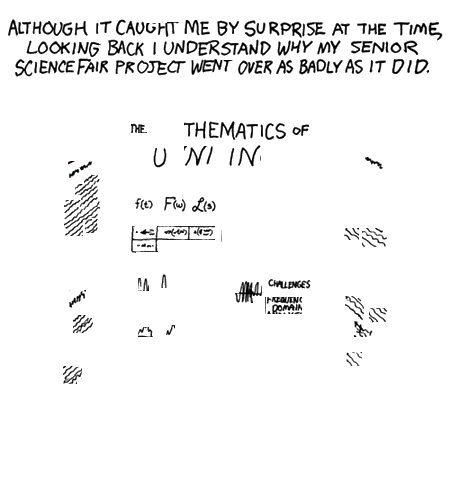 ALTHOUGH IT CAUGHT ME BY SURPRISE AT THE TIME,
LOOKING BACK I UNDERSTAND WHY MY SENIOR
SCIENCE FAIR PROJECT WENT OVER AS BADLY AS IT DID.
THE THEMATICS OF
f(t) F(ω) ℒ(s)
CHALLENGES
DOMAIN